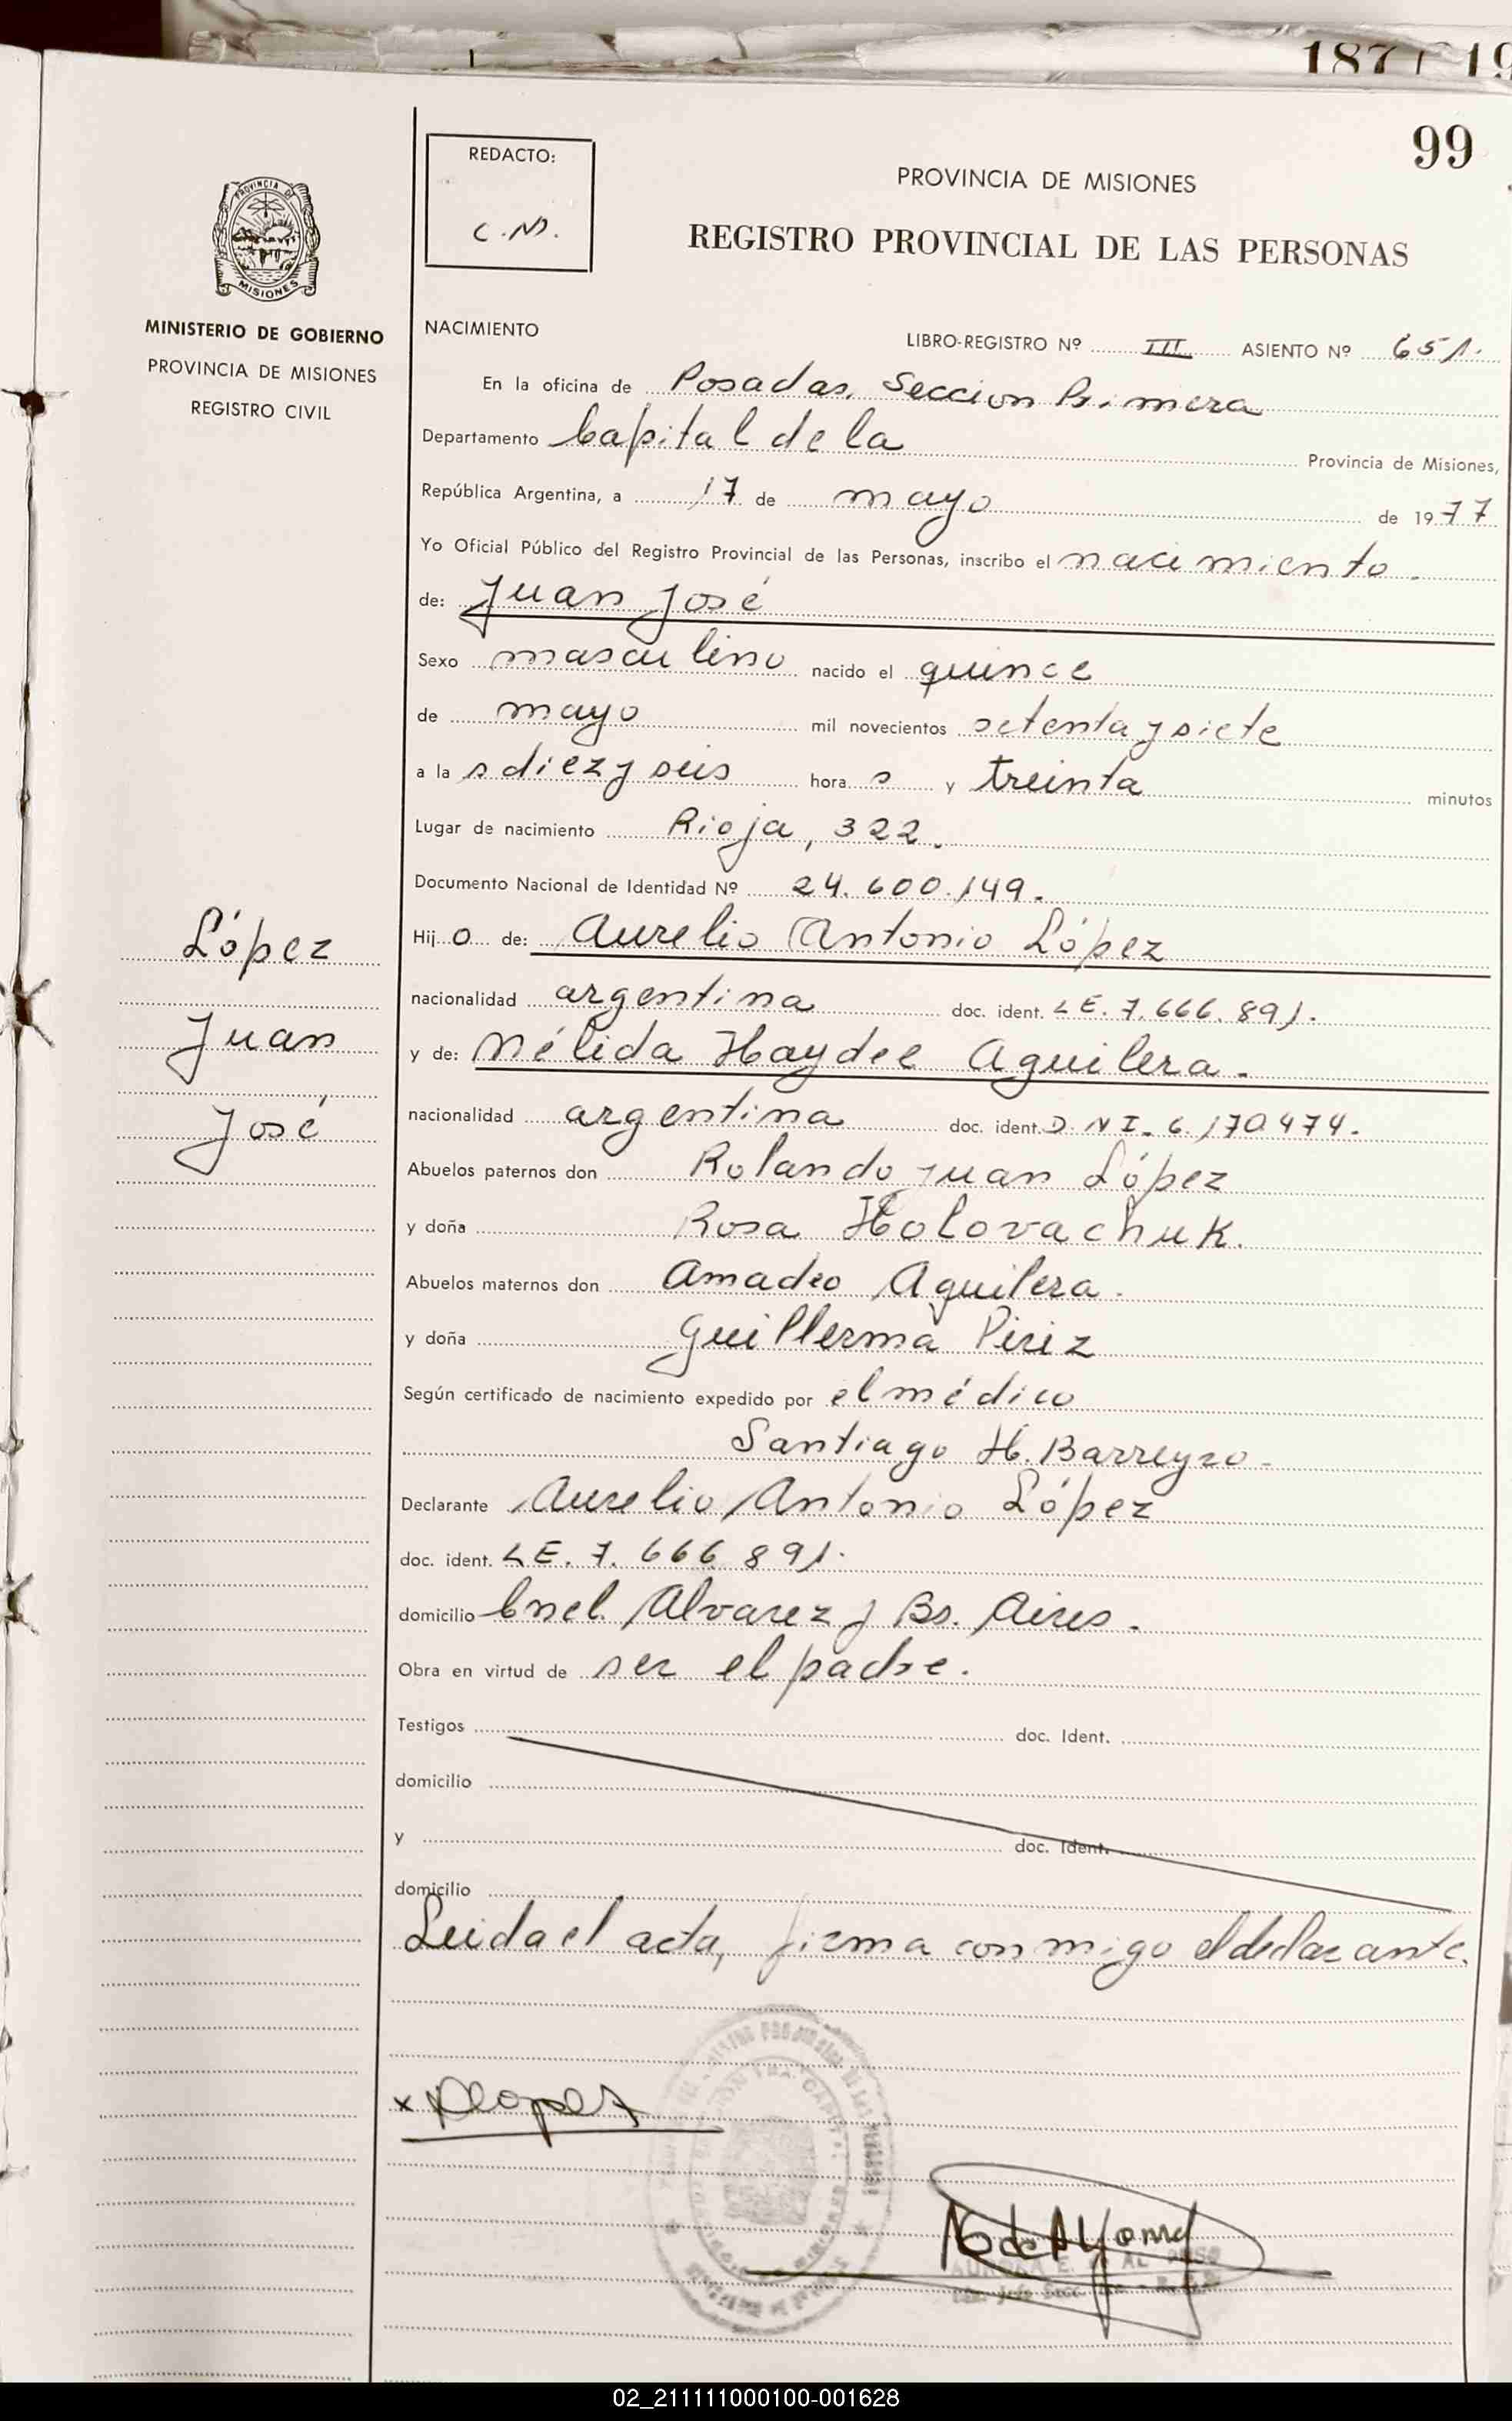 187 19
99
REDACTO:
C.N.
PROVINCIA DE MISIONES
REGISTRO PROVINCIAL DE LAS PERSONAS
PROVINCIA DE
MISIONES
MINISTERIO DE GOBIERNO
PROVINCIA DE MISIONES
REGISTRO CIVIL
NACIMIENTO LIBRO-REGISTRO Nº III ASIENTO Nº 651.
En la oficina de Posadas. Seccion Primera
Departamento Capital de la Provincia de Misiones,
República Argentina, a 17 de mayo de 1977
Yo Oficial Público del Registro Provincial de las Personas, inscribo el nacimiento.
de: Juan José
Sexo masculino nacido el quince
de mayo mil novecientos setenta y siete
a la s diez y seis hora s y treinta minutos
Lugar de nacimiento Rioja, 322.
Documento Nacional de Identidad Nº 24.600.149.
López
Hij o de: Aurelio Antonio López
nacionalidad argentina doc. ident. LE. 7.666.891.
Juan
y de: Nélida Haydee Aguilera.
José
nacionalidad argentina doc. ident. D.N I. 6.170474.
Abuelos paternos don Rolando Juan López
y doña Rosa Holovachuk.
Abuelos maternos don Amadeo Aguilera.
y doña Guillerma Piriz
Según certificado de nacimiento expedido por el médico
Santiago H. Barreyro-
Declarante Aurelio Antonio López
doc. ident. LE. 7. 666 891.
domicilio Cnel. Alvarez y Bs. Aires.
Obra en virtud de ser el padre.
Testigos doc. Ident.
domicilio
y doc. Ident.
domicilio
Leida el acta, firma conmigo el declarante.
x ALopez
02_211111000100-001628